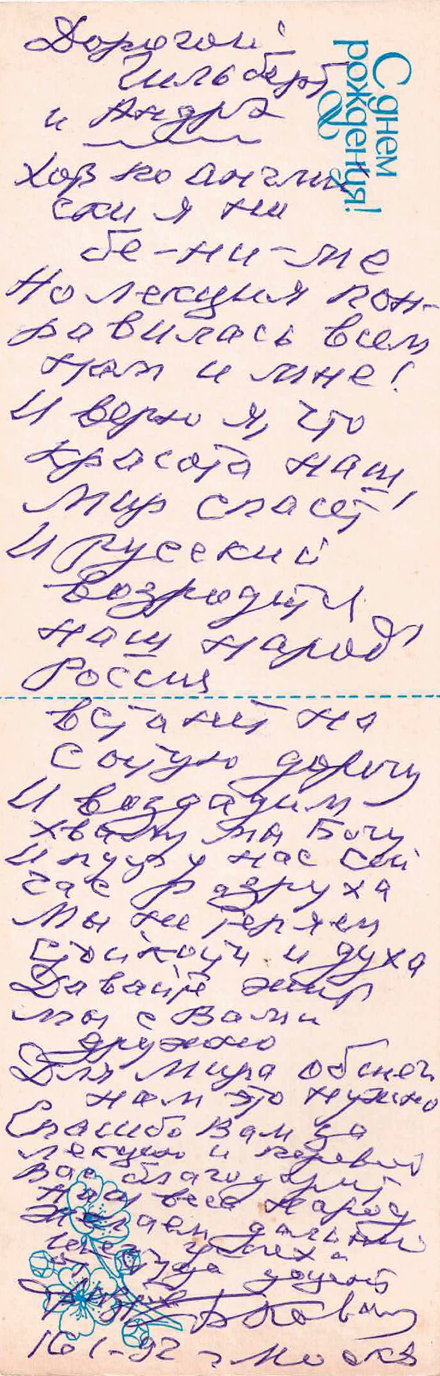 С днем
рождения!
Дорогой
Гильберт
и Андрэ
Хоть по англий
ски я ни
бе-ни-ме
Но лекция пон-
равилась всем
нам и мне!
И верю я, что
красота наш
мир спасёт,
И русский
возродится
наш народ
Россия
встанет на
святую дорогу
И воздадим
хвалу мы Богу
И пусть у нас сей
час разруха
Мы не теряем
стойкости и духа
Давайте жить
мы с Вами
дружно
Для Мира
нам это нужно
Спасибо Вам за
лекцию и
Вас благодарит
наш весь народ
Желаем дальней
успеха
доцент
16 1-92 г Москва